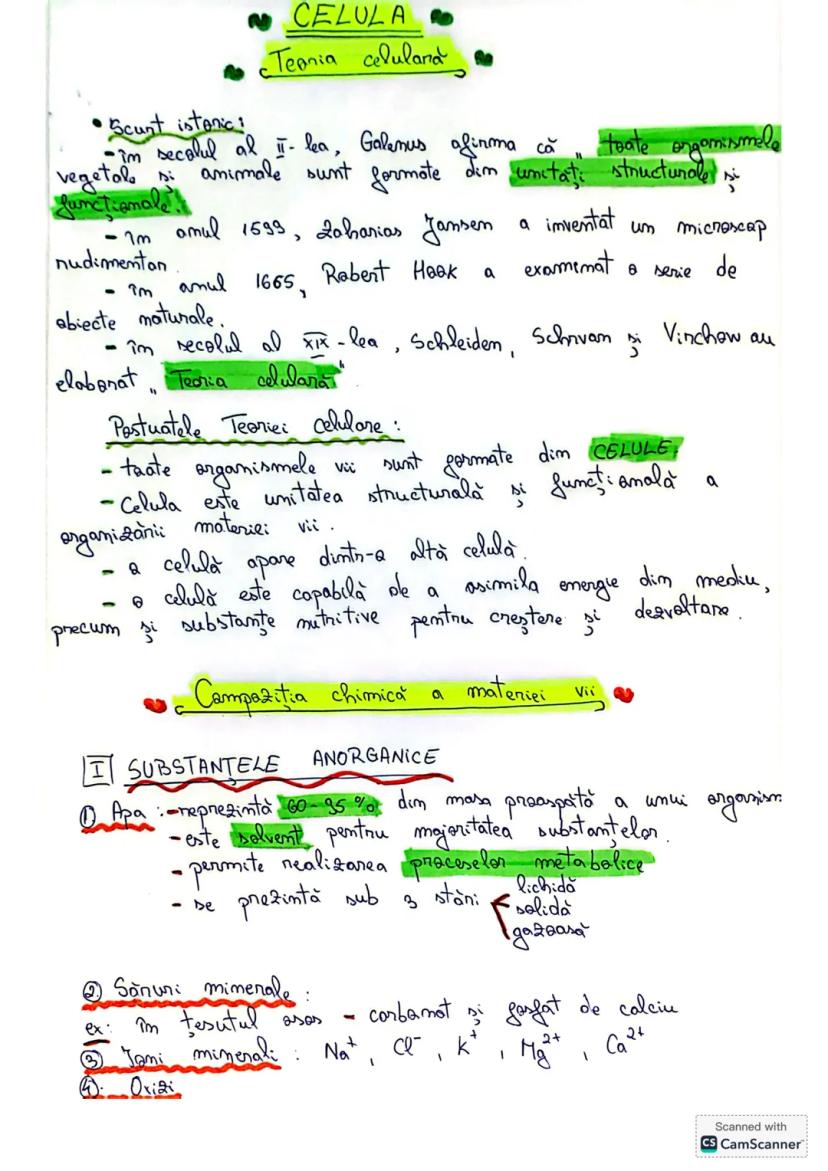 CELULA
Teoria celulară
• Scurt istoric:
- în secolul al II-lea, Galenus afirma că „toate organismele
vegetale și animale sunt formate din unități structurale și
funcționale."
- în anul 1599, Zaharias Jansen a inventat un microscop
rudimentar.
- în anul 1665, Robert Hook a examinat o serie de
obiecte naturale.
- în secolul al XIX-lea, Schleiden, Schwan și Virchow au
elaborat „Teoria celulară"
Postuatele Teoriei celulare:
- toate organismele vii sunt formate din CELULE;
- Celula este unitatea structurală și funcțională a
organizării materiei vii.
- o celulă apare dintr-o altă celulă.
- o celulă este capabilă de a asimila energie din mediu,
precum și substanțe nutritive pentru creștere și dezvoltare.
Compoziția chimică a materiei vii
I SUBSTANȚELE ANORGANICE
① Apa: - reprezintă 60-95% din masa proaspătă a unui organism
- este solvent pentru majoritatea substanțelor.
- permite realizarea proceselor metabolice
- se prezintă sub 3 stări
lichidă
solidă
gazoasă
② Săruri minerale:
ex: în țesutul osos - carbonat și fosfat de calciu
③ Ioni minerali: Na⁺, Cl⁻, K⁺, Mg²⁺, Ca²⁺
④. Oxizi
Scanned with
CS CamScanner